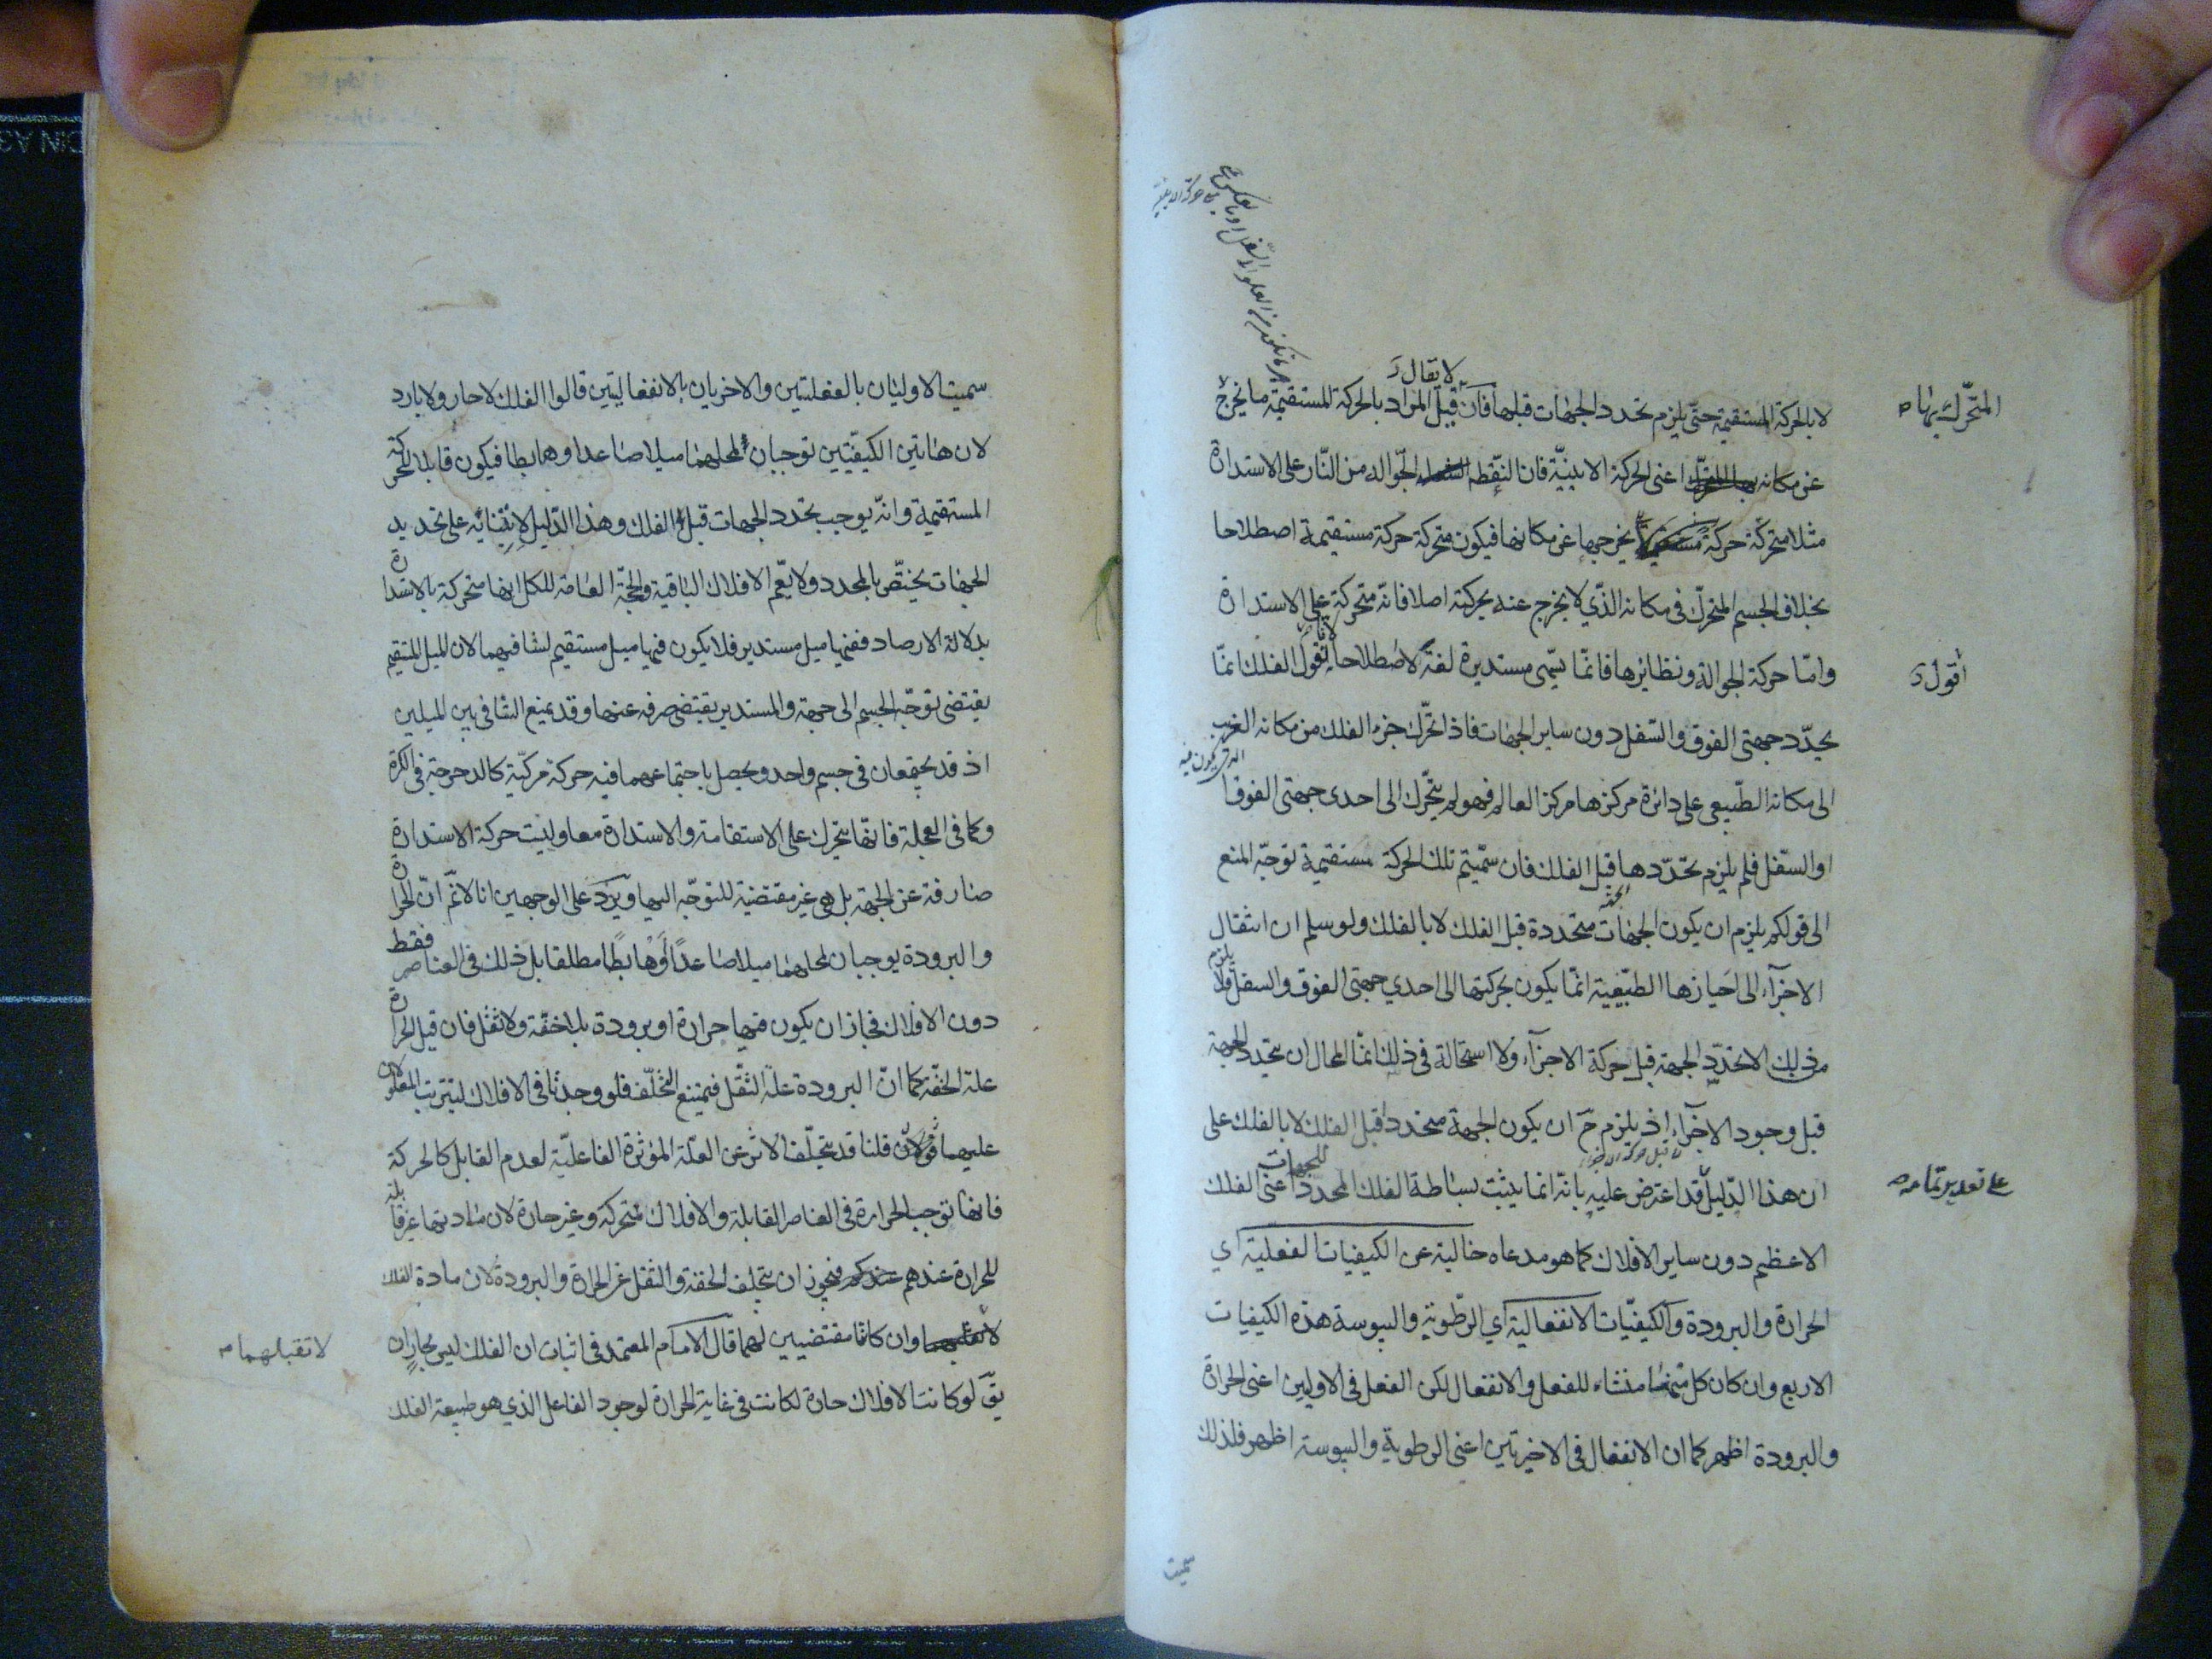 لا يقال
لا بالحركة المستقيمة حتى يلزم تحدد الجهات قبلها فان قيل المراد بالحركة المستقيمة ما يخرج
المتحرك بها م
عن مكانه اعنى الحركة الاينية فان النقطة الجوالة من النار على الاستدارة
مثلا متحركة حركة يخرجها عن مكانها فيكون متحركة حركة مستقيمة اصطلاحا
بخلاف الجسم المتحرك فى مكانه الذي لا يخرج عنه بحركته اصلا فانه متحركة على الاستدارة
واما حركة الجوالة ونظايرها فانما يسمى مستديرة لغة لا اصطلاحا لانا نقول الفلك انما
اقول
يحدد جهتى الفوق والسفل دون ساير الجهات فاذا تحرك جزء الفلك من مكانه الغريب
الذى يكون فيه
الى مكانه الطبيعى على دائرة مركزها مركز العالم فهو لم يتحرك الى احدى جهتى الفوق
او السفل فلم يلزم تحددها قبل الفلك فان سميتم تلك الحركة مستقيمة توجه المنع
الى قولكم يلزم ان يكون الجهات متحددة قبل الفلك لا بالفلك ولو سلم ان انتقال
الاجزآء الى احيازها الطبيعية انما يكون بحركتها الى احدي جهتى الفوق والسفل فلا يلزم
من ذلك الا تحدد الجهة قبل حركة الاجزآء ولا استحالة فى ذلك انما المحال ان يتحدد الجهة
قبل وجود الاجزآء اذ يلزم ح ان يكون الجهة متحددا قبل الفلك لا بالفلك على
ان هذا الدليل قد اعترض عليه بانه انما يثبت بساطة الفلك المحدد للجهات اعنى الفلك
على تقدير تمامه م
الاعظم دون ساير الافلاك كما هو مدعاه خالية عن الكيفيات الفعلية اي
الحرارة والبرودة والكيفيات الانفعالية اي الرطوبة واليبوسة هذه الكيفيات
الاربع وان كان كل منها منشاء للفعل والانفعال لكن الفعل فى الاوليين اعنى الحرارة
والبرودة اظهر كما ان الانفعال فى الاخيرتين اعنى الرطوبة واليبوسة اظهر فلذلك
سميت
سميت الاوليان بالفعليتين والاخريان بالانفعاليتين قالوا الفلك لا حار ولا بارد
لان هاتين الكيفيتين توجبان لمحلهما ميلا صاعدا وهابطا فيكون قابلا للحركة
المستقيمة وانه يوجب تحدد الجهات قبل الفلك وهذا الدليل لابتنائه على تحديد
الجهات يختص بالمحدد ولا يعم الافلاك الباقية والحجة العامة للكل انها متحركة بالاستدارة
بدلالة الارصاد ففيها ميل مستدير فلا يكون فيها ميل مستقيم لتنافيهما لان الميل المستقيم
يقتضى توجه الجسم الى جهة والمستدير يقتضى صرفه عنها وقد يمنع التنافى بين الميلين
اذ قد يجتمعان فى جسم واحد ويحصل باجتماعهما فيه حركة مركبة كالدحرجة فى الكرة
وكما فى العجلة فانها يتحرك على الاستقامة والاستدارة معا وليست حركة الاستدارة
صارفة عن الجهة بل هى غير مقتضية للتوجه اليها ويرد على الوجهين انا لا نم ان الحرارة
والبرودة يوجبان لمحلهما ميلا صاعدا وهابطا مطلقا بل ذلك فى العناصر فقط
دون الافلاك فجاز ان يكون فيها حرارة او برودة بلا خفة ولا ثقل فان قيل الحرارة
علة الخفة كما ان البرودة علة الثقل فيمتنع التخلف فلو وجدتا فى الافلاك لترتب المعلولان
عليهما قلنا قد يتخلف الاثر عن العلة المؤثرة الفاعلية لعدم القابل كالحركة
فانها توجب الحرارة فى العناصر القابلة والافلاك متحركة وغير حارة لان مادتها غير قابلة
للحرارة عندهم فيجوز ان يتخلف الخفة والثقل عن الحرارة والبرودة لان مادة الفلك
وان كانتا مقتضيين لهما قال الامام المعتمد فى اثبات ان الفلك ليس بحار ان
لا تقبلهما م
يق لو كانت الافلاك حارة لكانت فى غاية الحرارة لوجود الفاعل الذي هو طبيعة الفلك